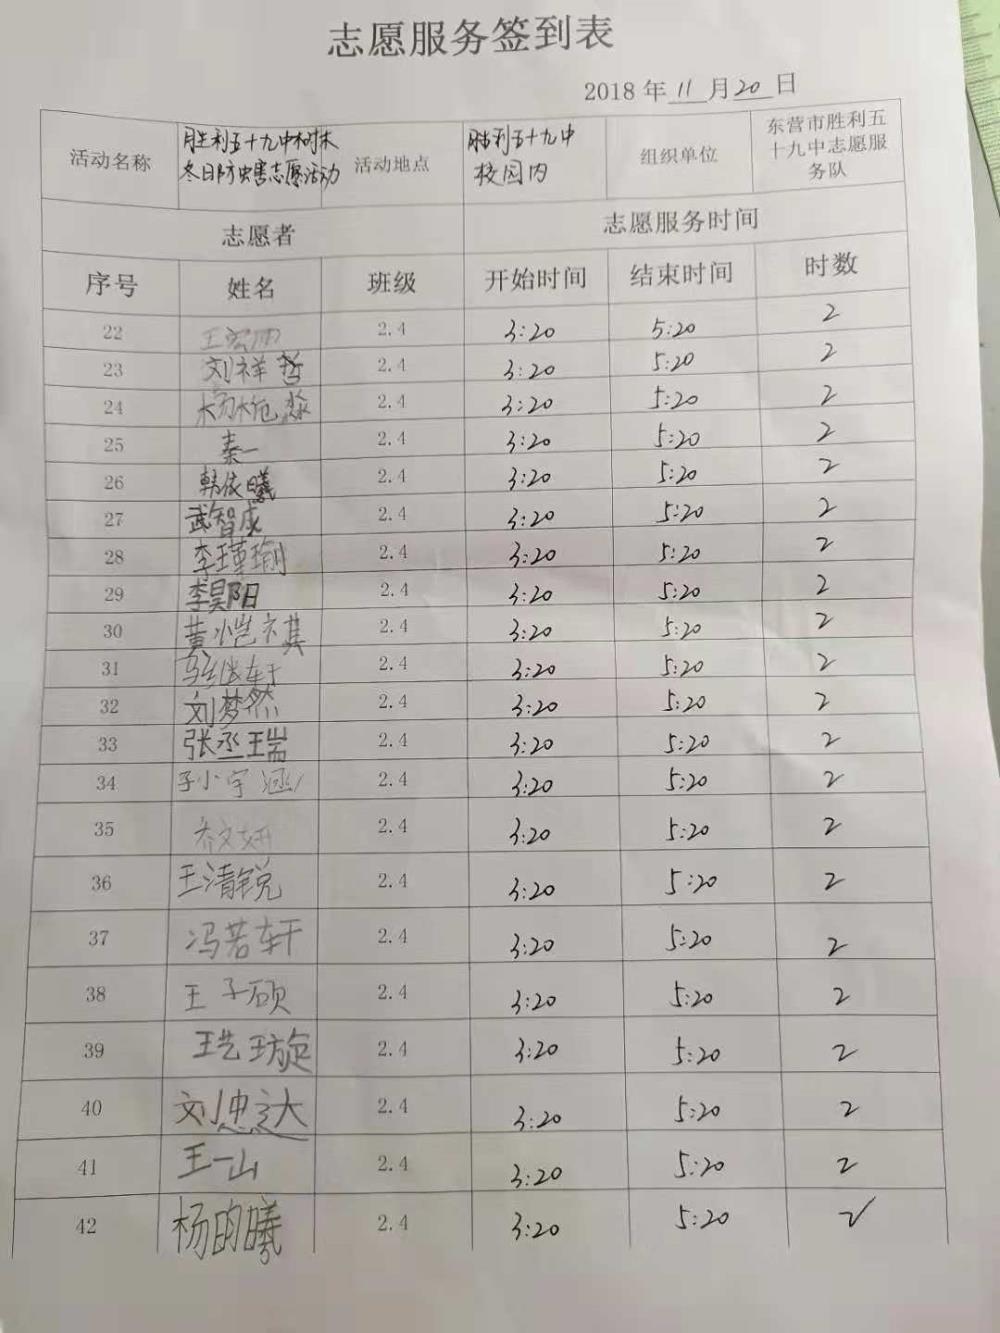 志愿服务签到表
2018 年 11 月 20 日
活动名称 胜利五十九中树木冬日防虫害志愿活动 活动地点 胜利五十九中校园内 组织单位 东营市胜利五十九中志愿服务队
志愿者 志愿服务时间
序号 姓名 班级 开始时间 结束时间 时数
22 王宏帅 2.4 3:20 5:20 2
23 刘祥哲 2.4 3:20 5:20 2
24 杨柂淼 2.4 3:20 5:20 2
25 秦一 2.4 3:20 5:20 2
26 韩依曦 2.4 3:20 5:20 2
27 武智成 2.4 3:20 5:20 2
28 李瑾瑜 2.4 3:20 5:20 2
29 李昊阳 2.4 3:20 5:20 2
30 黄恺祺 2.4 3:20 5:20 2
31 2.4 3:20 5:20 2
32 刘梦然 2.4 3:20 5:20 2
33 张丞瑞 2.4 3:20 5:20 2
34 孙宇涵 2.4 3:20 5:20 2
35 乔文妍 2.4 3:20 5:20 2
36 王清锐 2.4 3:20 5:20 2
37 冯若轩 2.4 3:20 5:20 2
38 王子硕 2.4 3:20 5:20 2
39 王艺璇 2.4 3:20 5:20 2
40 刘忠达 2.4 3:20 5:20 2
41 王一山 2.4 3:20 5:20 2
42 杨昀曦 2.4 3:20 5:20 2